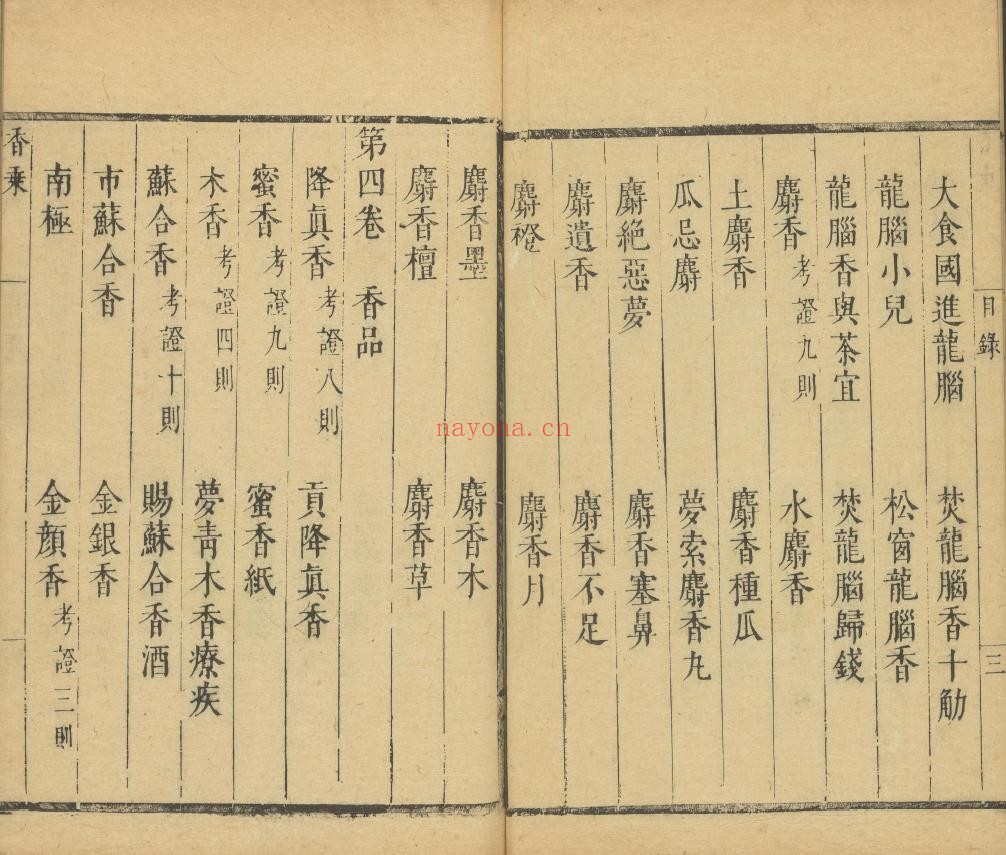 目錄
三
大食國進龍腦 焚龍腦香十觔
龍腦小兒 松窗龍腦香
龍腦香與茶宜 焚龍腦歸錢
麝香考證九則 水麝香
土麝香 麝香種瓜
瓜忌麝 夢索麝香丸
麝絕惡夢 麝香塞鼻
麝遺香 麝香不足
麝橙 麝香月
麝香墨 麝香木
麝香檀 麝香草
第四卷 香品
降眞香考證八則 貢降眞香
蜜香考證九則 蜜香紙
木香考證四則 夢靑木香療疾
蘇合香考證十則 賜蘇合香酒
市蘇合香 金銀香
南極 金顏香考證三則
香乗
nayona.cn